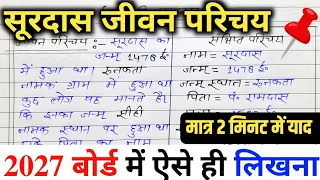 सूरदास जीवन परिचय
जीवन परिचय :- सूरदास का
जन्म 1478 ई०
में हुआ था। रुनकता
नामक ग्राम में हुआ था
कुछ लोग यह मानते हैं।
कि इनका जन्म सीही
नामक स्थान पर हुआ था
संक्षिप्त परिचय
नाम = सूरदास
जन्म = 1478 ई०
जन्म स्थान = रुनकता
पिता = पं. रामदास
मात्र 2 मिनट में याद
2027 बोर्ड में ऐसे ही लिखना